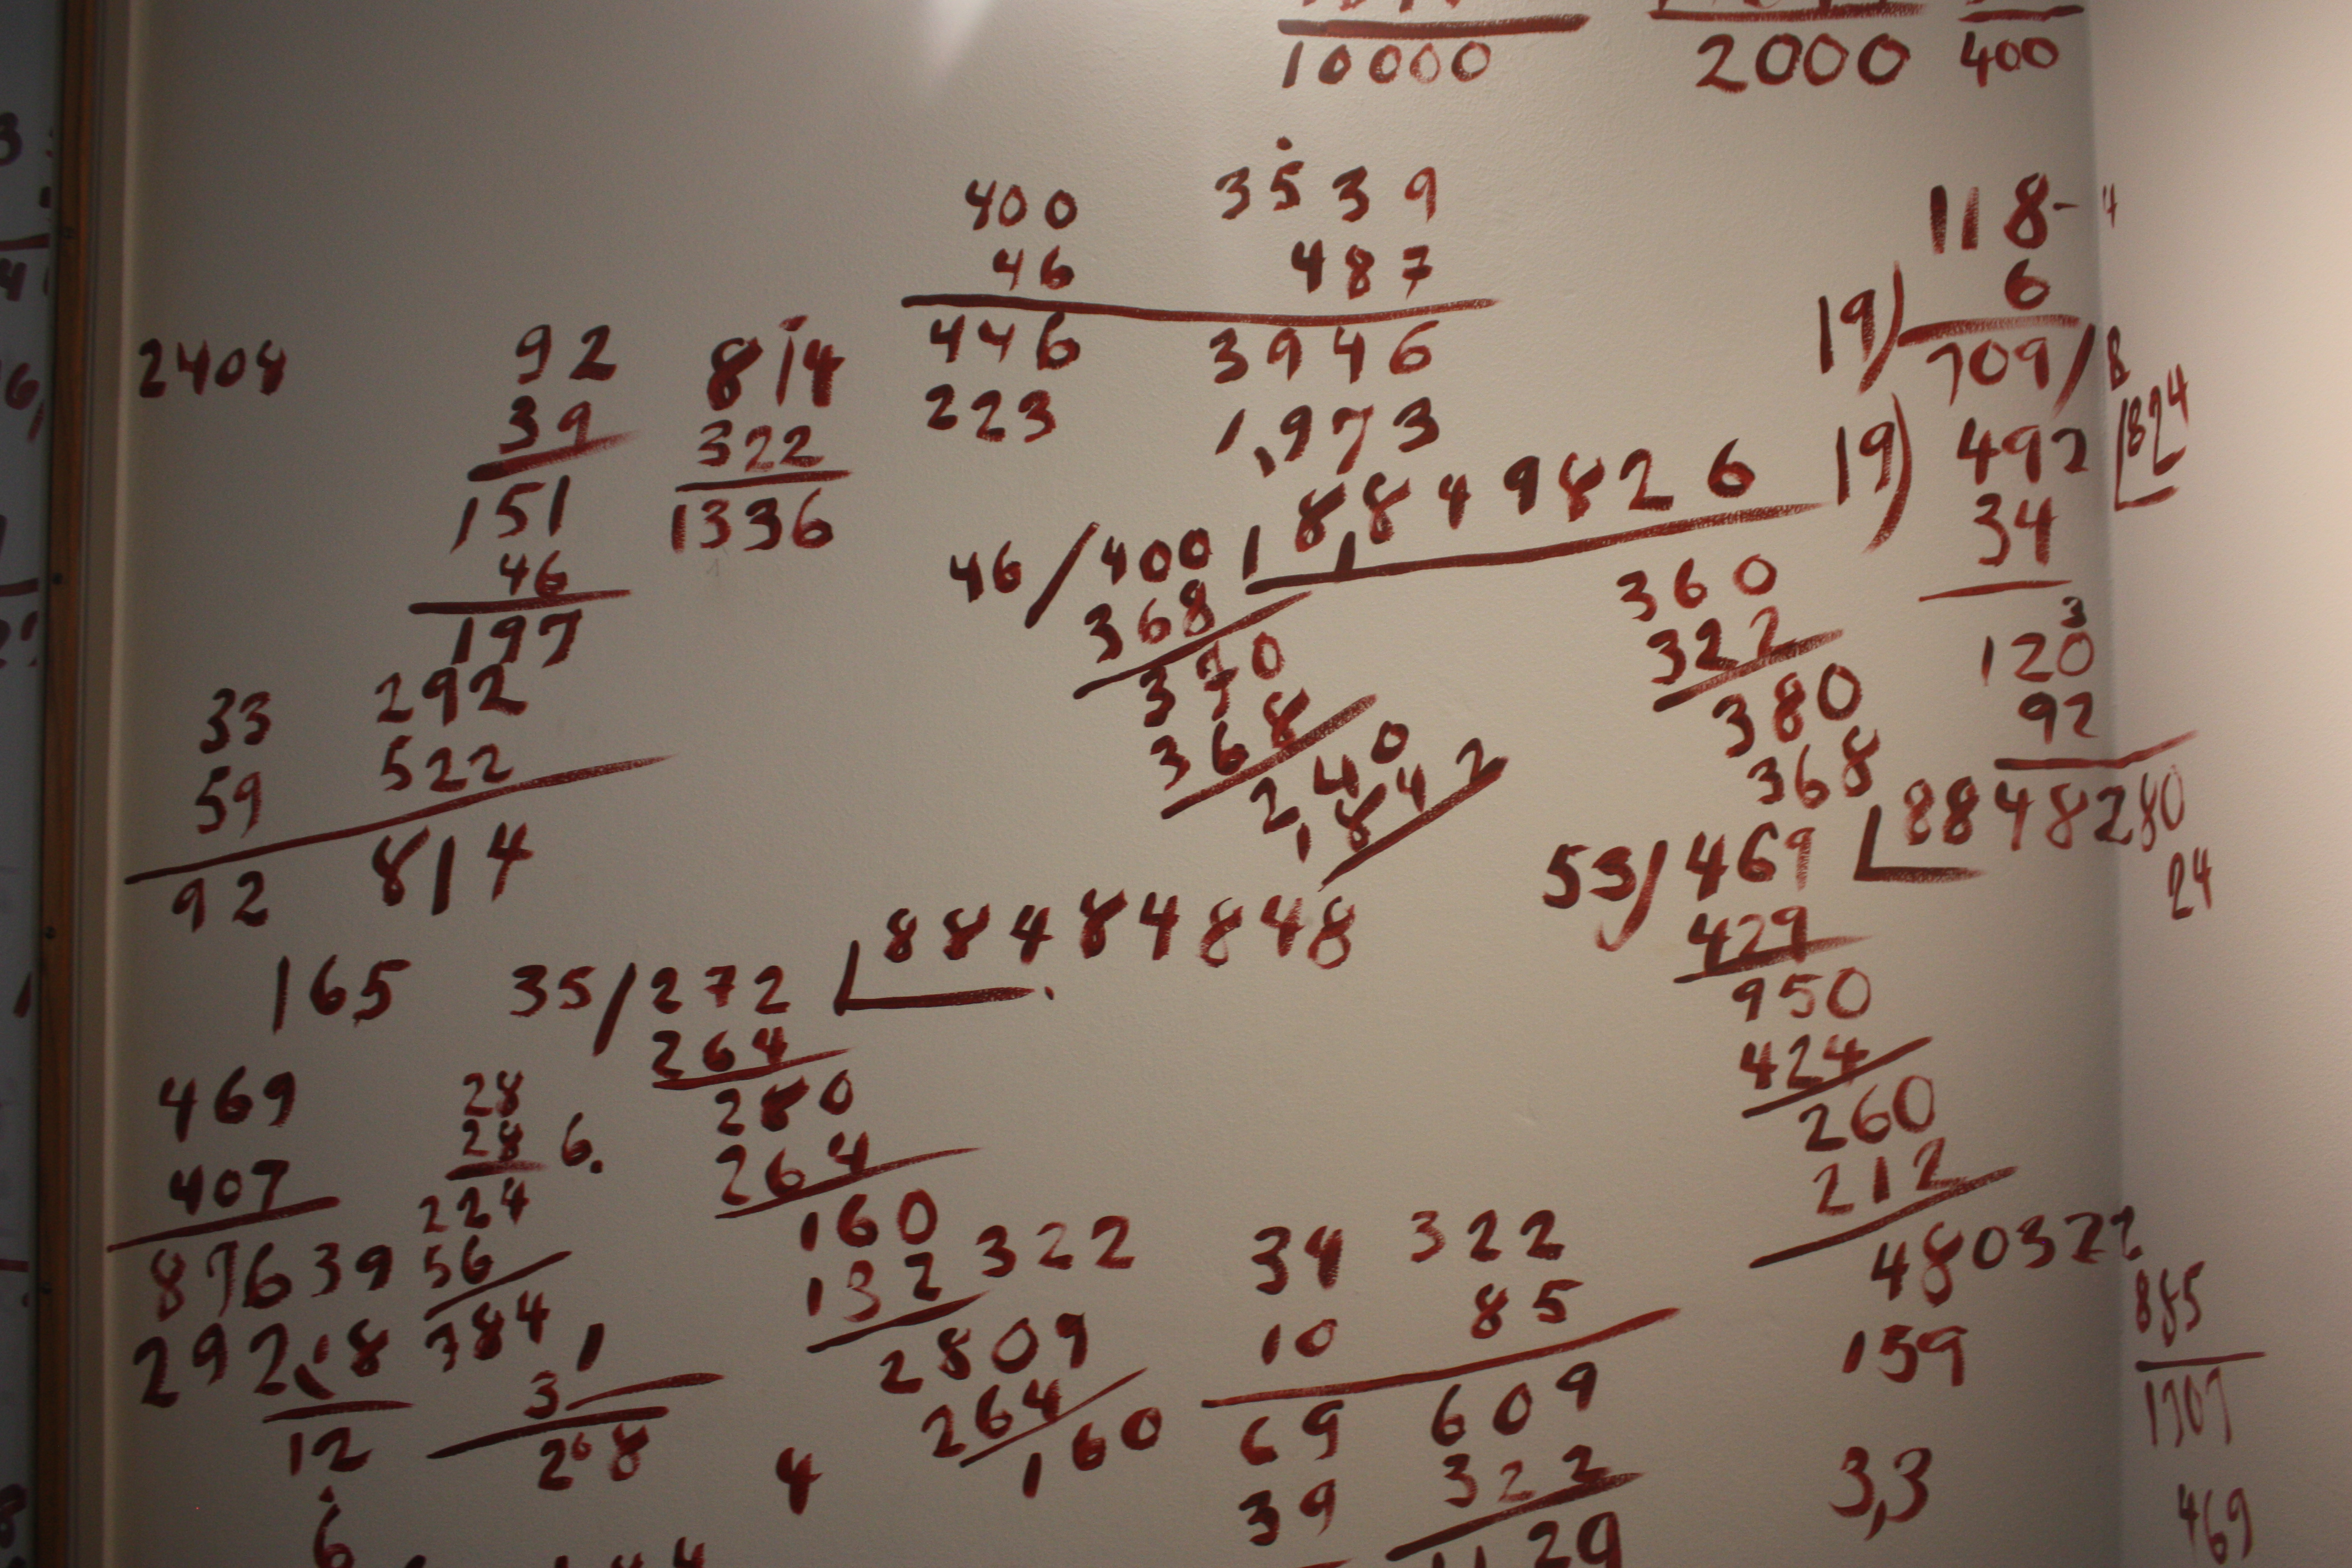 10000 2000 400
400 3539 118-4
46 487 6
446 3946 19) 709/8
223 1,973 19) 492 1824
34
2408 92 814
39 322
151 1336
46
197
46/400 1 8,849826
368
370
368
240
1,842
360
322
380
368
120
92
33 292
59 522
92 814
53/469 8848280
24
429
950
424
260
212
480322
159
3,3
885
1707
469
165 35/272 88484848
264
280
264
160
132 322
2809
264
160
469 28
407 28 6.
876 39 224
292 18 56
12 784
3
268
6
4
34 322
10 85
69 609
39 322